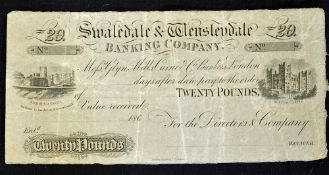 £20 Swaledale & Wensleydale £20
No BANKING COMPANY. No
Messrs Glyn, Mills, Currie & Co. Bankers London
days after date pay to the order
of TWENTY POUNDS,
Value received
186 For the Directors & Company
Entd.
Twenty Pounds MANAGER